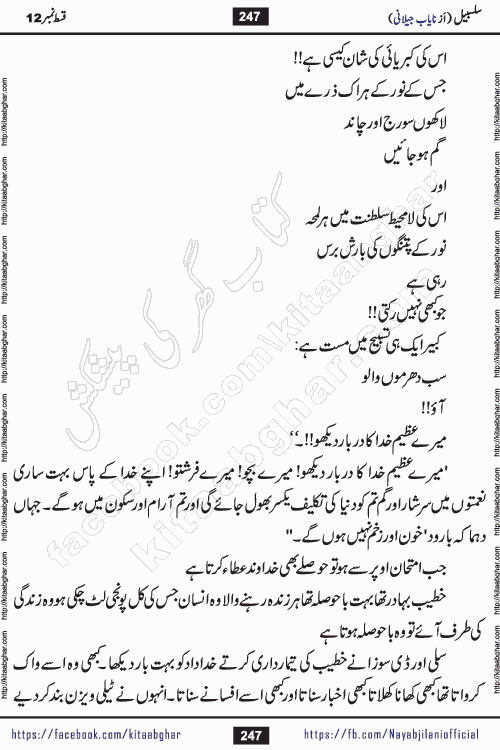 قسط نمبر 12
247
سلسبیل (از نایاب جیلانی)
اس کی کبریائی کی شان کیسی ہے!!
جس کے نور کے ہر اک ذرے میں
لاکھوں سورج اور چاند
گم ہو جائیں
اور
اس کی لامحیط سلطنت میں ہر لمحہ
نور کے پتنگوں کی بارش برس
رہی ہے
جو کبھی نہیں رکتی!!
کبیر ایک ہی تسبیح میں مست ہے:
سب دھرموں والو
آؤ!!
میرے عظیم خدا کا دربار دیکھو!!۔‘‘
'میرے عظیم خدا کا دربار دیکھو! میرے بچو! میرے فرشتو! اپنے خدا کے پاس بہت ساری
نعمتوں میں سرشار اور گم تم کو دنیا کی تکلیف یکسر بھول جائے گی اور تم آرام اور سکون میں ہو گے۔ جہاں
دہما کہ بارود' خون اور زخم نہیں ہوں گے۔"
جب امتحان اوپر سے ہو تو حوصلے بھی خداوند عطاء کرتا ہے
خطیب بہادر تھا بہت باحوصلہ تھا ہر زندہ رہنے والا وہ انسان جس کی کل پونجی لٹ چکی ہو وہ زندگی
کی طرف آئے تو وہ باحوصلہ ہوتا ہے
سلی اور ڈی سوزا نے خطیب کی تیمارداری کرتے خداداد کو بہت بار دیکھا۔ کبھی وہ اسے واک
کرواتا تھا کبھی کھانا کھلاتا کبھی اخبار سناتا اور کبھی اسے افسانے سناتا۔ انہوں نے ٹیلی ویزن بند کر دیے
https://facebook.com/kitaabghar
247
https://fb.com/Nayabjilaniofficial
http://kitaabghar.com
کتاب گھر کی پیشکش
facebook.com/kitaabghar
kitaabghar.com